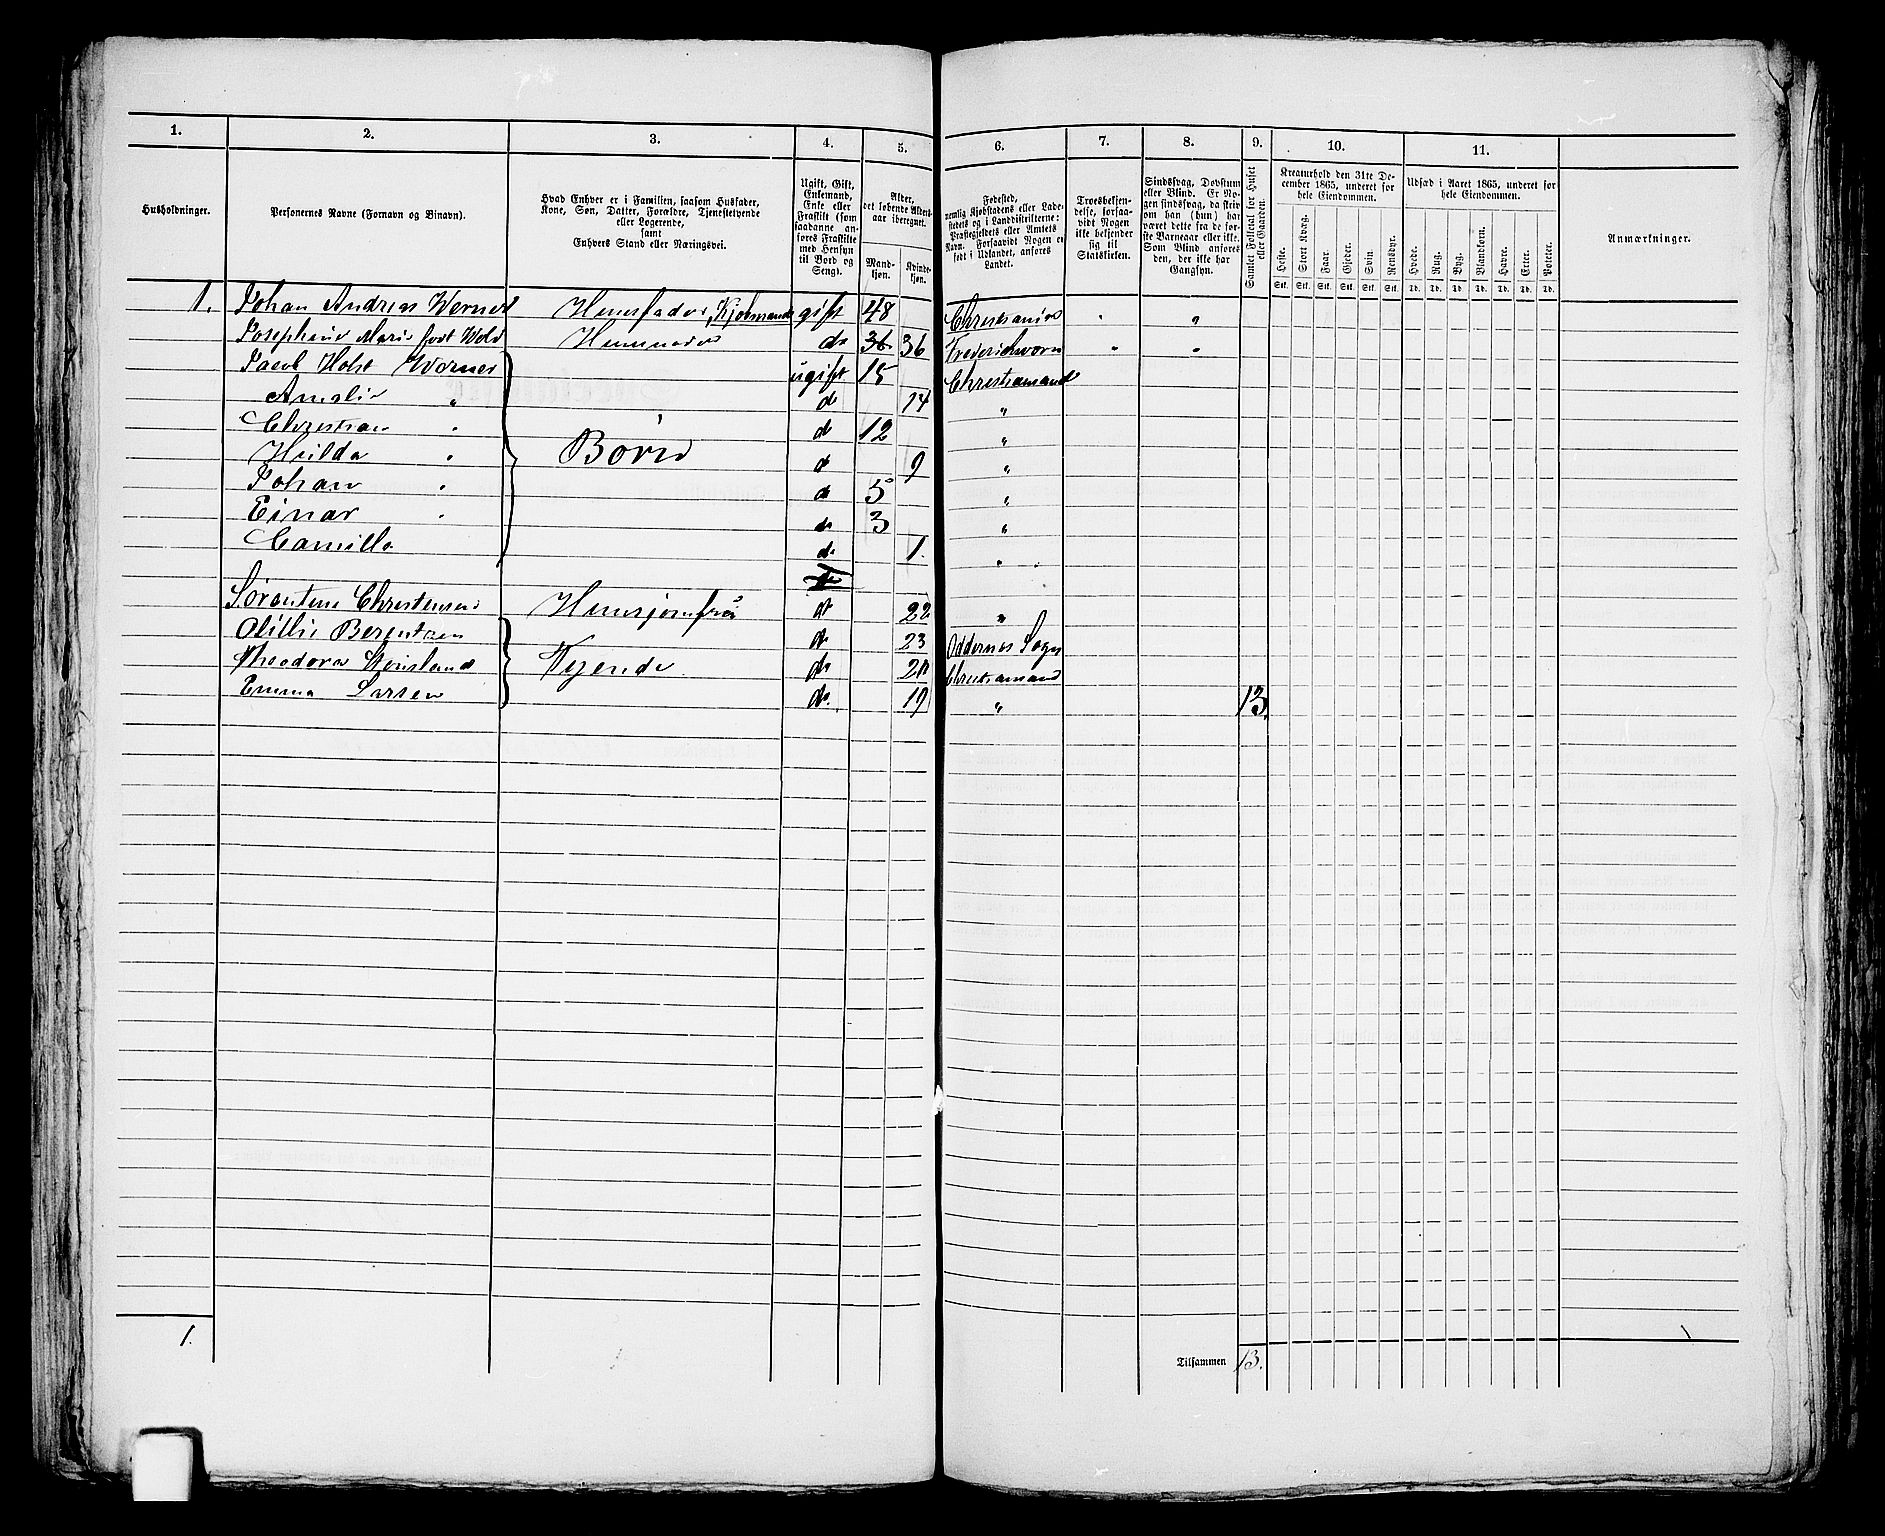 1. 2. 3. 4. 5. 6. 7. 8. 9. 10. 11.
Husholdninger.
Personernes Navne (Fornavn og Binavn).
Hvad Enhver er i Familien, saasom Husfader,
Kone, Søn, Datter, Forældre, Tjenestetyende
eller Logerende,
samt
Enhvers Stand eller Næringsvei.
Ugift, Gift,
Enkemand,
Enke eller
Fraskilt (som
saadanne an-
føres Fraskilte
med Hensyn
til Bord og
Seng).
Alder,
det løbende Alders-
aar iberegnet.
Mand-
kjøn.
Kvinde-
kjøn.
Fødested,
nemlig Kjøbstadens eller Lade-
stedets og i Landdistrikterne:
Præstegjeldets eller Amtets
Navn. Forsaavidt Nogen er
født i Udlandet, anføres
Landet.
Troesbekjen-
delse, forsaa-
vidt Nogen
ikke bekjender
sig til
Statskirken.
Sindssvag, Døvstum
eller Blind. Er No-
gen sindssvag, da skriv
om han (hun) har
været dette fra de før-
ste Barneaar eller ikke.
Som Blind anføres
den, der ikke har
Gangsyn.
Samlet Folketal for Huset
eller Gaarden.
Kreaturhold den 31te De-
cember 1865, underet for
hele Eiendommen.
Heste. Stort Kvæg. Faar. Gjeder. Svin. Rensdyr.
Stk. Stk. Stk. Stk. Stk. Stk.
Udsæd i Aaret 1865, underet for
hele Eiendommen.
Hvede. Rug. Byg. Blandkorn. Havre. Erter. Poteter.
Td. Td. Td. Td. Td. Td. Td.
Anmærkninger.
1. Johan Andreas Werner Huusfader, Kjøbmand gift 48 Christiania " "
Josephine Marie født Wold Huusmoder do 36 36 Frederiksværn " "
Jacob Holst Werner ugift 15 Christiansand
Amalie " do 14 "
Christian " do 12 "
Hilda " Børn do 9 "
Johan " do 5 "
Einar " do 3 "
Camilla do 1. "
Sørentine Christensen Huusjomfru do 22 "
Ollie Berentzen do 23 Oddernes Sogn
Theodora Tyende do Christiansand
Emma do. 19 " 13.
1. Tilsammen 13.